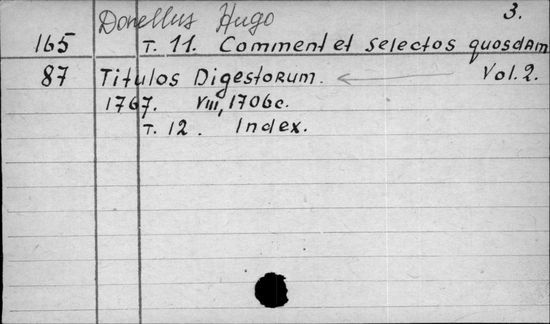 Donellus Hugo 3.
165 T. 11. Comment et selectos quosdam
87 Titulos Digestorum. Vol. 2.
1767. VIII, 1706 c.
T. 12. Index.